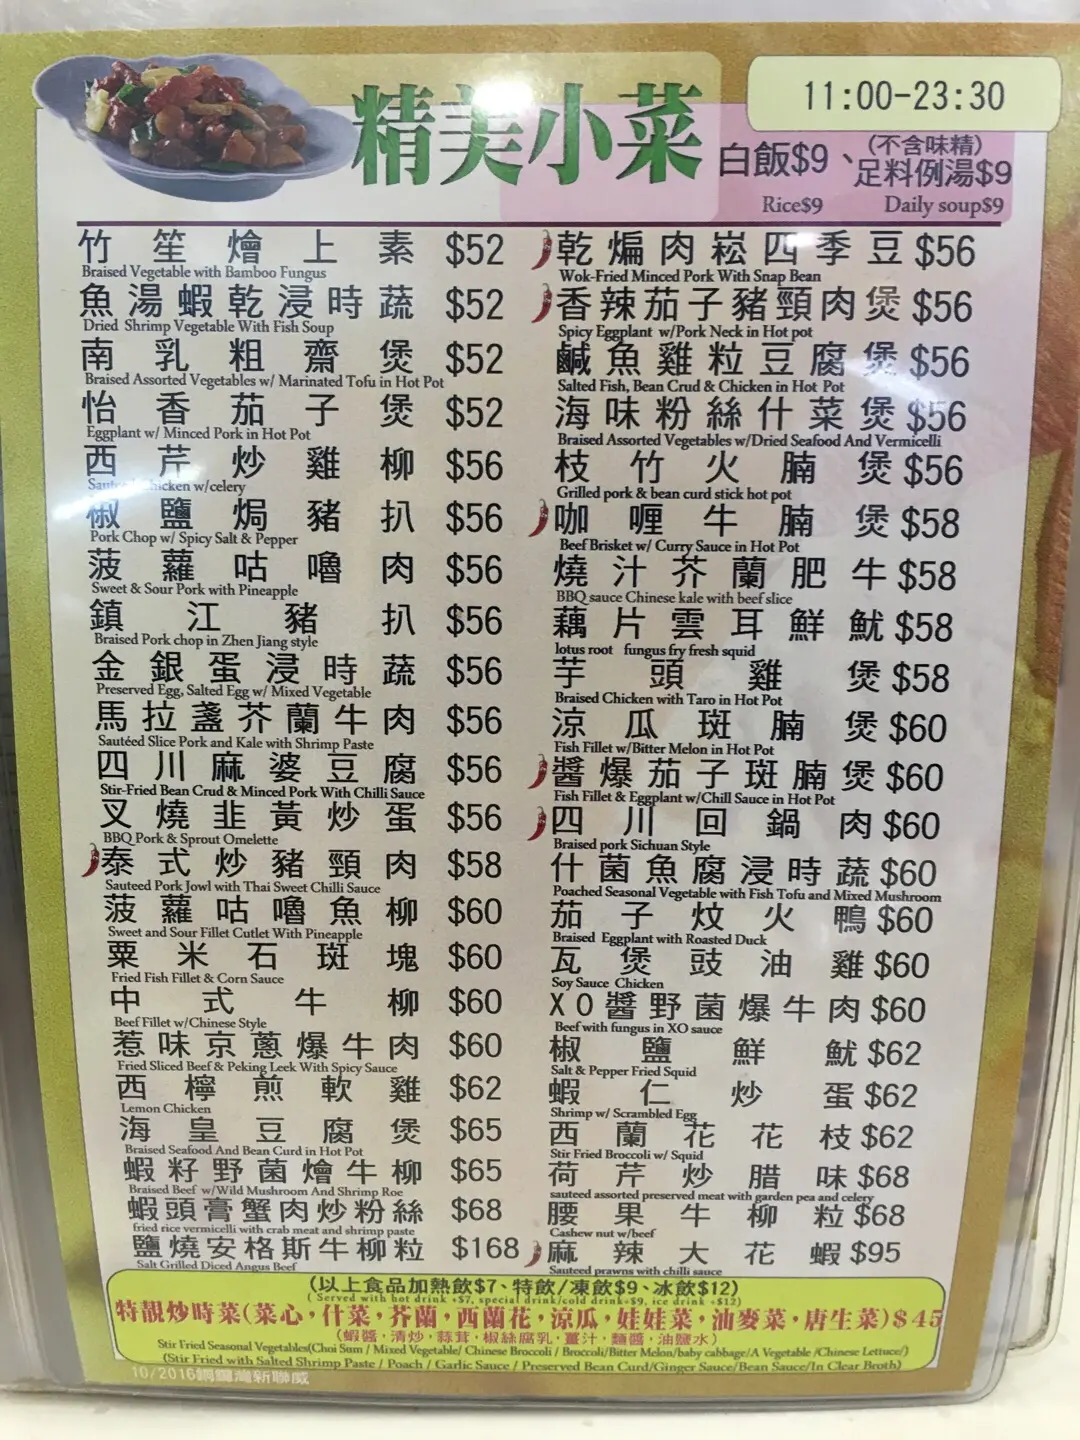 11:00-23:30
精美小菜
白飯$9、
(不含味精)
足料例湯$9
Rice$9
Daily soup$9
竹笙燴上素 $52
Braised Vegetable with Bamboo Fungus
魚湯蝦乾浸時蔬 $52
Dried Shrimp Vegetable With Fish Soup
南乳粗齋煲 $52
Braised Assorted Vegetables w/ Marinated Tofu in Hot Pot
怡香茄子煲 $52
Eggplant w/ Minced Pork in Hot Pot
西芹炒雞柳 $56
w/celery
椒鹽焗豬扒 $56
Pork Chop w/ Spicy Salt & Pepper
菠蘿咕嚕肉 $56
Sweet & Sour Pork with Pineapple
鎮江豬扒 $56
Braised Pork chop in Zhen Jiang style
金銀蛋浸時蔬 $56
Preserved Egg, Salted Egg w/ Mixed Vegetable
馬拉盞芥蘭牛肉 $56
Sautéed Slice Pork and Kale with Shrimp Paste
四川麻婆豆腐 $56
Stir-Fried Bean Crud & Minced Pork With Chilli Sauce
叉燒韭黃炒蛋 $56
BBQ Pork & Sprout Omelette
泰式炒豬頸肉 $58
Sauteed Pork Jowl with Thai Sweet Chilli Sauce
菠蘿咕嚕魚柳 $60
Sweet and Sour Fillet Cutlet With Pineapple
粟米石斑塊 $60
Fried Fish Fillet & Corn Sauce
中式牛柳 $60
Beef Fillet w/Chinese Style
惹味京蔥爆牛肉 $60
Fried Sliced Beef & Peking Leek With Spicy Sauce
西檸煎軟雞 $62
Lemon Chicken
海皇豆腐煲 $65
Braised Seafood And Bean Curd in Hot Pot
蝦籽野菌燴牛柳 $65
Braised Beef w/Wild Mushroom And Shrimp Roe
蝦頭膏蟹肉炒粉絲 $68
fried rice vermicelli with crab meat and shrimp paste
鹽燒安格斯牛柳粒 $168
Salt Grilled Diced Angus Beef
乾煸肉崧四季豆 $56
Wok-Fried Minced Pork With Snap Bean
香辣茄子豬頸肉煲 $56
Spicy Eggplant w/Pork Neck in Hot pot
鹹魚雞粒豆腐煲 $56
Salted Fish, Bean Crud & Chicken in Hot Pot
海味粉絲什菜煲 $56
Braised Assorted Vegetables w/Dried Seafood And Vermicelli
枝竹火腩煲 $56
Grilled pork & bean curd stick hot pot
咖喱牛腩煲 $58
Beef Brisket w/ Curry Sauce in Hot Pot
燒汁芥蘭肥牛 $58
BBQ sauce Chinese kale with beef slice
藕片雲耳鮮魷 $58
lotus root fungus fry fresh squid
芋頭雞煲 $58
Braised Chicken with Taro in Hot Pot
涼瓜斑腩煲 $60
Fish Fillet w/Bitter Melon in Hot Pot
醬爆茄子斑腩煲 $60
Fish Fillet & Eggplant w/Chill Sauce in Hot Pot
四川回鍋肉 $60
Braised pork Sichuan Style
什菌魚腐浸時蔬 $60
Poached Seasonal Vegetable with Fish Tofu and Mixed Mushroom
茄子炆火鴨 $60
Braised Eggplant with Roasted Duck
瓦煲豉油雞 $60
Soy Sauce Chicken
XO醬野菌爆牛肉 $60
Beef with fungus in XO sauce
椒鹽鮮魷 $62
Salt & Pepper Fried Squid
蝦仁炒蛋 $62
Shrimp w/ Scrambled Egg
西蘭花花枝 $62
Stir Fried Broccoli w/ Squid
荷芹炒腊味 $68
sauteed assorted preserved meat with garden pea and celery
腰果牛柳粒 $68
Cashew nut w/beef
麻辣大花蝦 $95
Sauteed prawns with chilli sauce
(以上食品加熱飲$7、特飲/凍飲$9、冰飲$12)
( Served with hot drink +$7, special drink/cold drink+$9, ice drink +$12)
特靚炒時菜(菜心，什菜，芥蘭，西蘭花，涼瓜，娃娃菜，油麥菜，唐生菜)$45
(蝦醬，清炒，蒜茸，椒絲腐乳，薑汁，麵醬，油鹽水)
Stir Fried Seasonal Vegetables(Choi Sum / Mixed Vegetable/ Chinese Broccoli / Broccoli/Bitter Melon/baby cabbage/A Vegetable /Chinese Lettuce/)
(Stir Fried with Salted Shrimp Paste / Poach / Garlic Sauce / Preserved Bean Curd/Ginger Sauce/Bean Sauce/In Clear Broth)
10/2016銅鑼灣新聯威